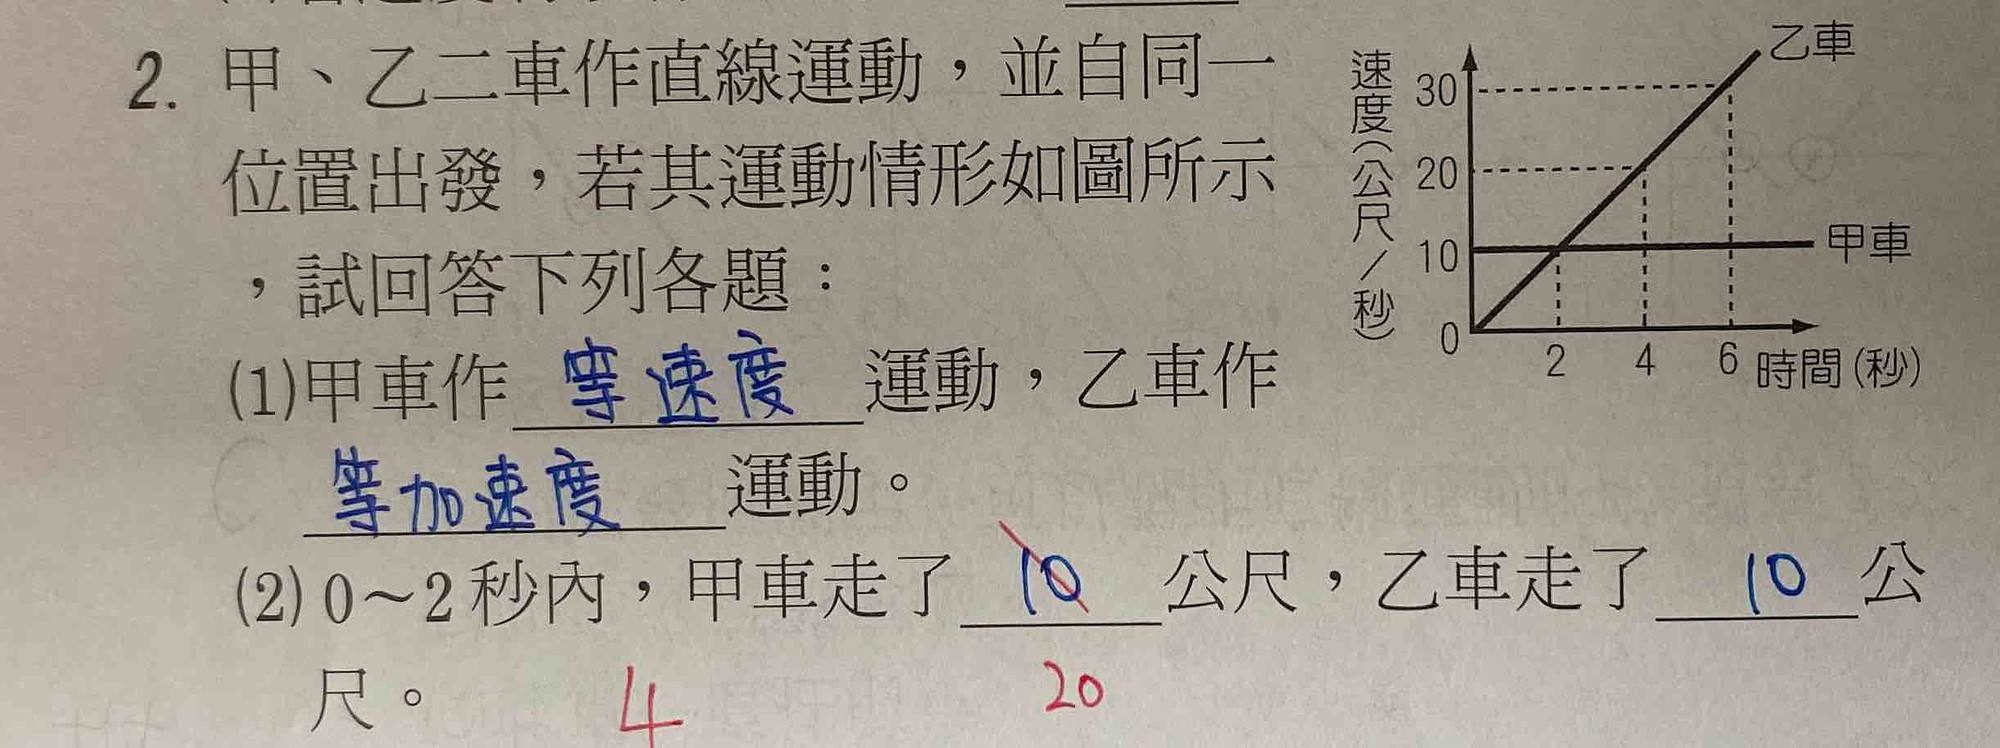 2. 甲、乙二車作直線運動，並自同一
位置出發，若其運動情形如圖所示
，試回答下列各題：
(1)甲車作 等速度 運動，乙車作
等加速度 運動。
(2) 0～2 秒內，甲車走了 10 公尺，乙車走了 10 公
尺。 4 20
速度(公尺／秒)
30
20
10
0
2 4 6 時間(秒)
乙車
甲車